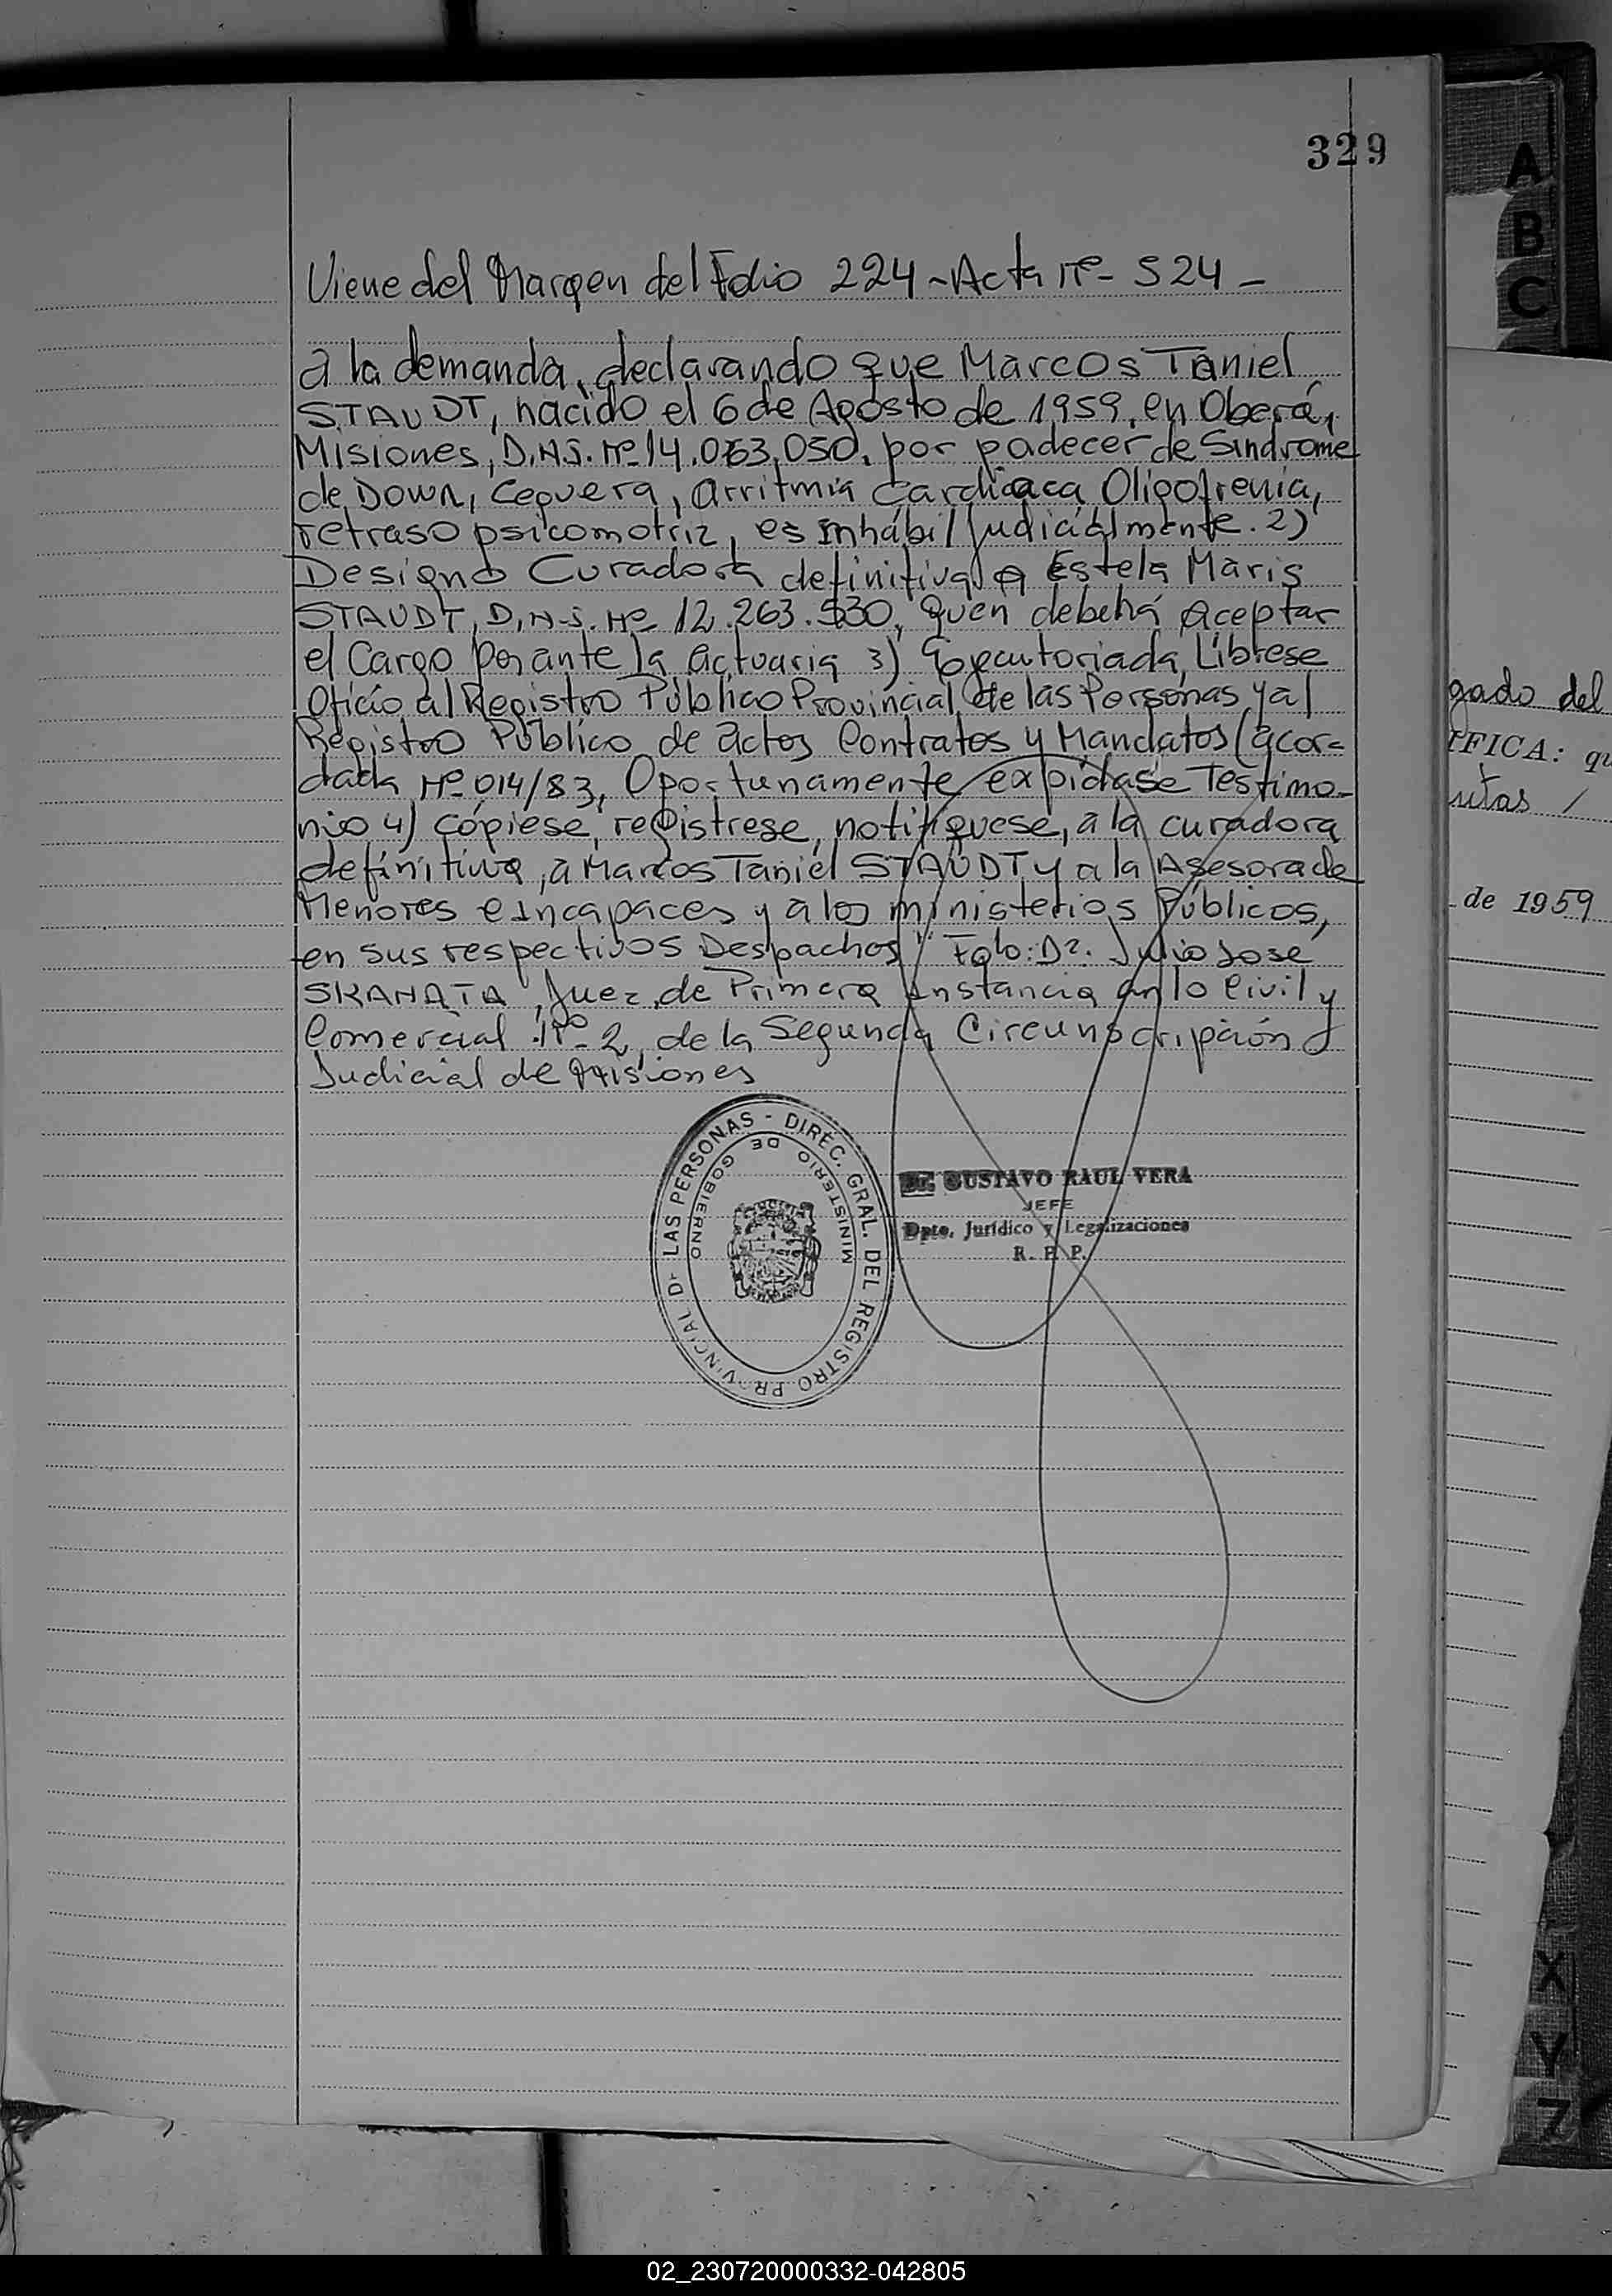 329
Viene del Margen del Folio 224 - Acta Nº - 524 -
a la demanda, declarando que Marcos Taniel
STAUDT, nacido el 6 de Agosto de 1959, en Oberá,
Misiones, D.N.I. Nº 14.063.050, por padecer de Sindrome
de Down, Ceguera, arritmia Cardiaca Oligofrenia,
retraso psicomotriz, es inhábil judicialmente. 2)
Designo Curadora definitiva a Estela Maris
STAUDT, D.N.I. Nº 12.263.530, quen deberá aceptar
el Cargo por ante la actuaria 3) Ejecutoriada, Líbrese
Oficio al Registro Público Provincial de las Personas y al
Registro Público de actos Contratos y Mandatos (acor=
dada Nº 014/83, Oportunamente expídase Testimo-
nio 4) cópiese, registrese, notifíquese, a la curadora
definitiva, a Marcos Taniel STAUDT y a la Asesora de
Menores e Incapaces y a los ministerios Públicos,
en sus respectivos Despachos" Fdo: Dr. Julio Jose
SKANATA, Juez de Primera Instancia en lo Civil y
Comercial Nº 2, de la Segunda Circunscripción
Judicial de Misiones
DIREC. GRAL. DEL REGISTRO PR VINCIAL D LAS PERSONAS -
MINISTERIO DE GOBIERNO
GUSTAVO RAUL VERA
JEFE
Dpto. Jurídico y Legalizaciones
R. P. P.
gado del
IFICA: qu
de 1959
A
B
C
X
Y
Z
02_230720000332-042805